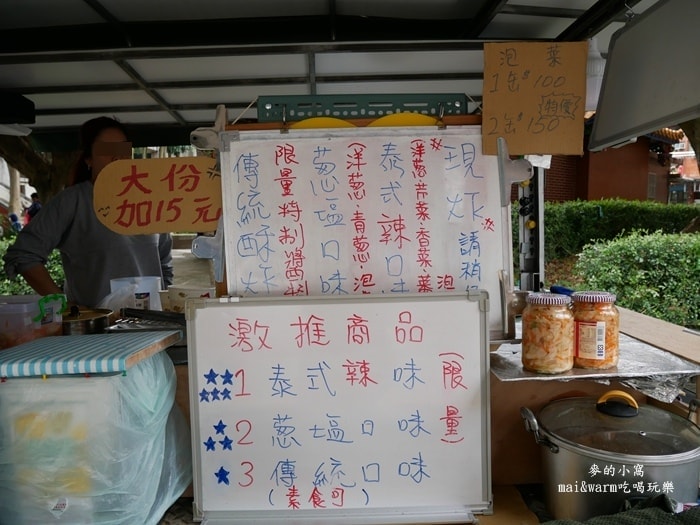 泡菜
1缶$100
特價
2缶$150
大份
加15元
※現炸 請稍
(洋葱.芹菜.香菜.菜
泡
泰式辣口味
(洋葱.青葱.泡
葱塩口味
限量特制醬
傳統酥炸
激推商品
1 泰式辣味
(限量)
2 葱塩口味
3 傳統口味
(素食可)
麥的小窩
mai&warm吃喝玩樂